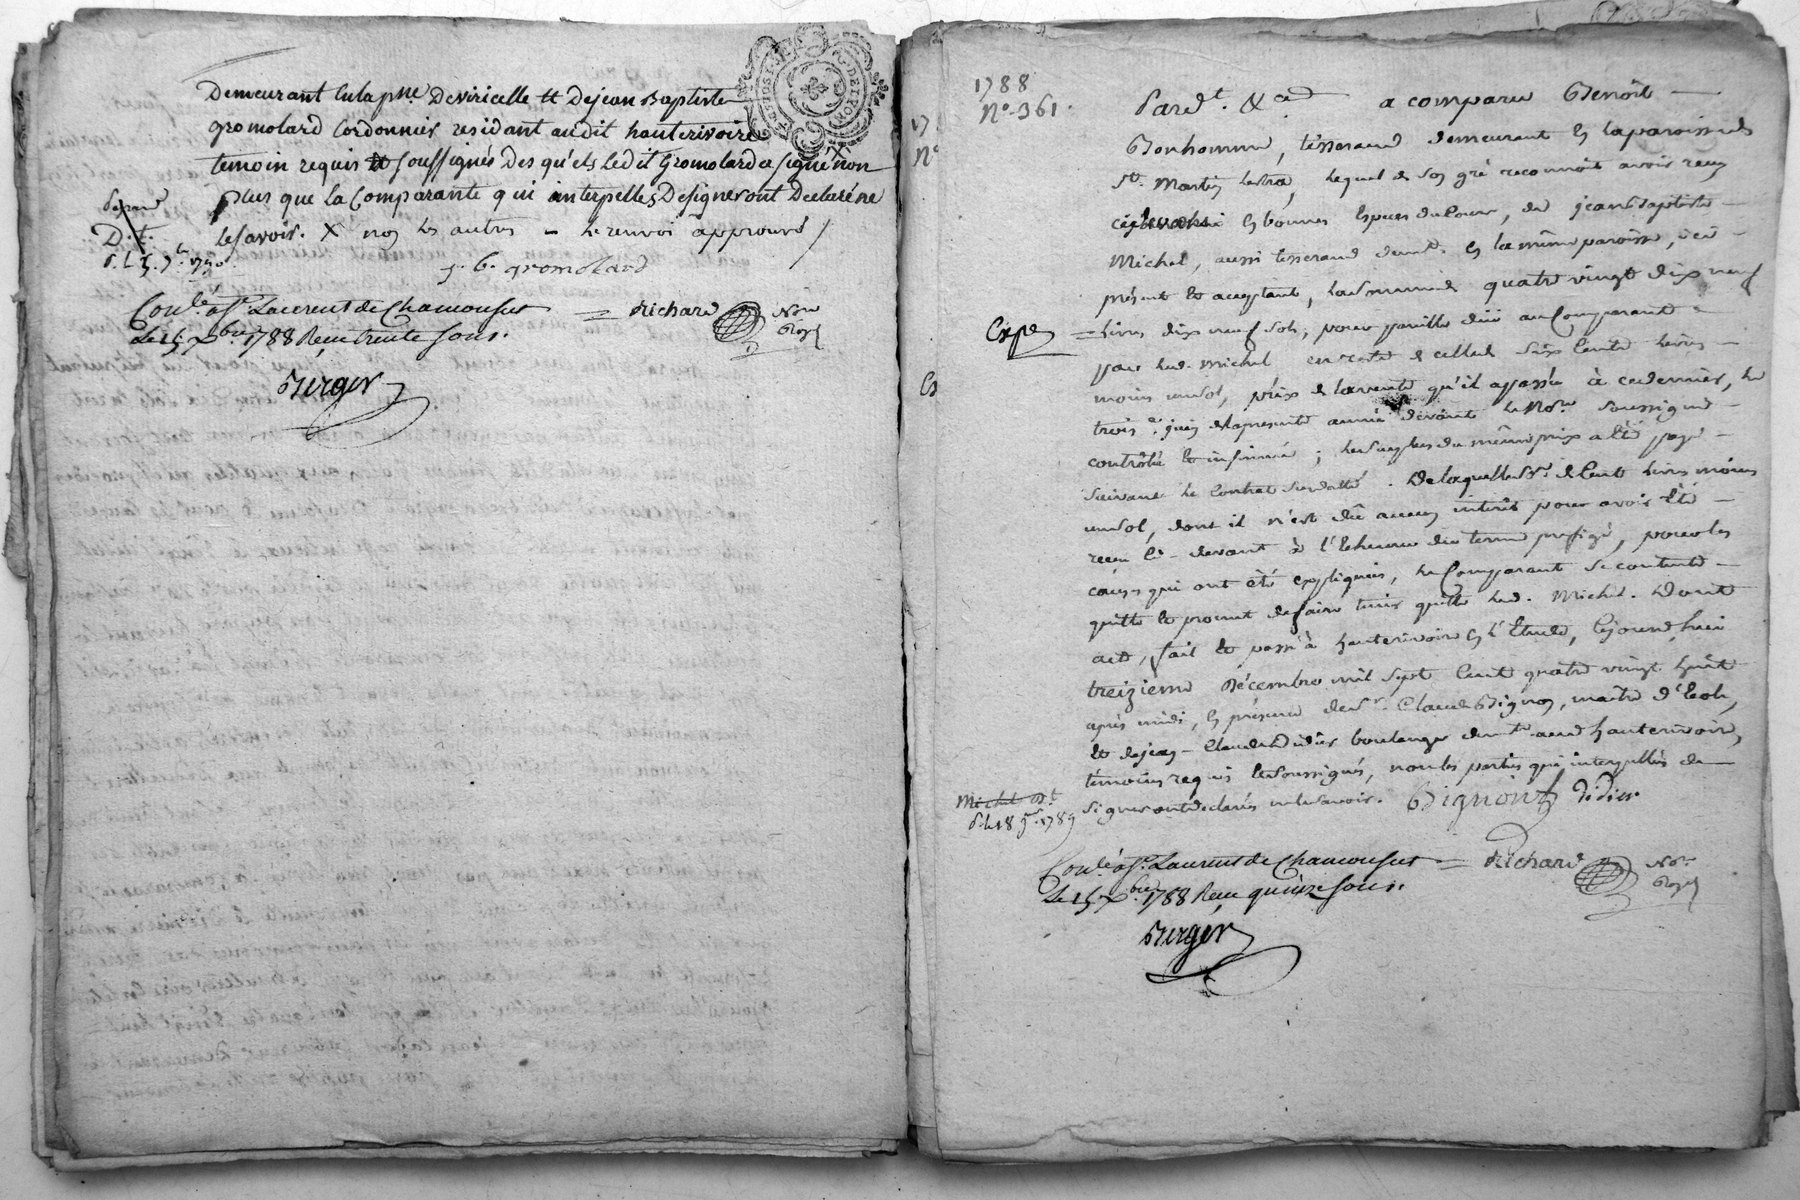 Demeurant en la p^sse De viricelle et De jean Baptiste
gromolard Cordonnier residant audit hauterivoire
temoin requis et soussignés Des qu'els Ledit Gromolard a signé X non
plus que la Comparante qui interpellés De signer ont Declaré ne
le savoir. X non les autres = le renvoi approuvé /
D. t.
j. b. gromolard
Con^lé à S^t Laurent de Chamousset = Richard Not^re
Le 15 X^bre 1788 Reçu trente sous. Royal
Berger
1788
N° 361.
Pard^t. &c a comparu Benoît
Bonhomme, tisserand demeurant en la paroisse de
S^t. Martin Lestra, lequel de son gré reconnoit avoir reçu
en bonnes especes du cours, de jean Baptiste
Michel, aussi tisserand dem^t. en la même paroisse, ici
présent et acceptant, la somme de quatre vingt dix neuf
livres dix neuf sols, pour pareille düe au Comparant
par led. Michel en reste de celle de six cents livres
moins un sol, prix de la vente qu'il a passée à ce dernier, le
trois juin de la presente année devant le No^re soussigné
contrôlé et insinué ; le surplus du même prix a été payé
suivant le contrat susdatté. De laquelle s^e de cent livres moins
un sol, dont il n'est dû aucun intérêt pour avoir été
reçu ci-devant à l'écheance du terme prefigé, pour les
causes qui ont été expliquées, le Comparant se contente
quitte et promet de faire tenir quitte led. Michel. Dont
acte, fait et passé à hauterivoire en l'Etude, cejourd'huy
treizieme Décembre mil sept cent quatre vingt huit
après midi, en présence de S^r. Claude Bignon, maître d'Ecole,
et de jean-Claude Didier boulanger dem^t. aud. hauterivoire,
témoins requis et soussignés, non les parties qui interpellées de
signer ont déclaré ne le savoir. Bignon Didier
Michel D.t
d. le 18 j^er. 1789
Con^lé à S^t Laurent de Chamousset = Richard Not^re
Le 15 X^bre 1788 Reçu quinze sous. Royal
Berger